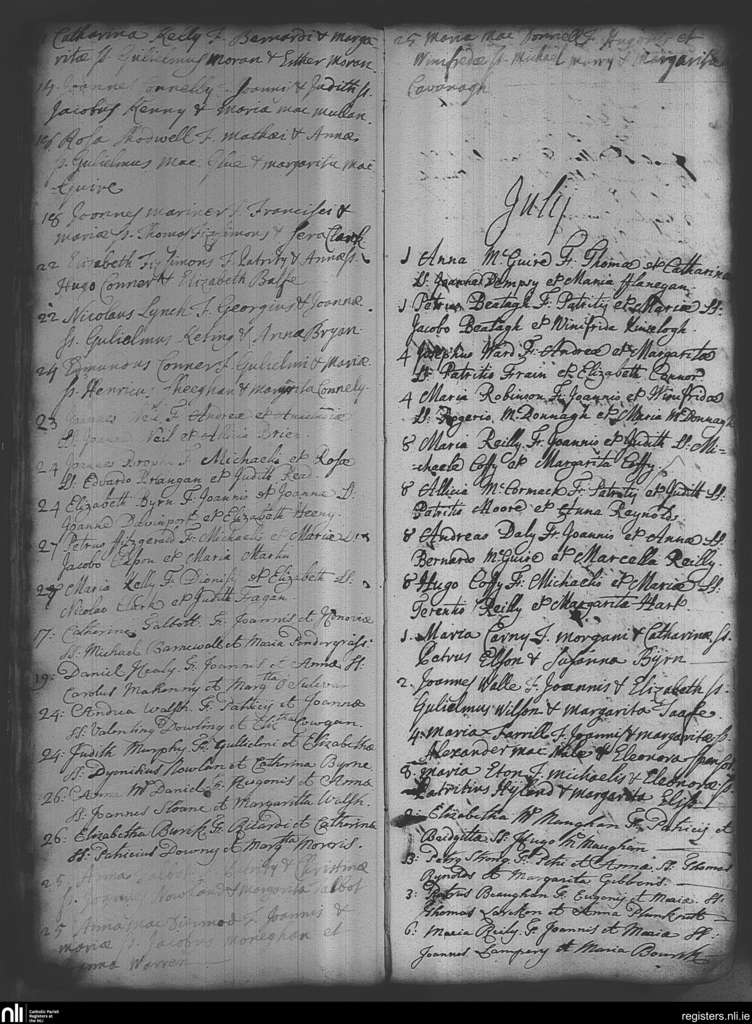 Catharina Reily F. Bernardi & Marga
ritæ ss. Gulielmus Moran & Esther Moran
14 Joannes Connelly F. Joannis & Judith ss.
Jacobus Kenny & Maria mac mullan.
Rosa Rodwell F. Mathæi & Annæ
ss. Gulielmus Mac & margarita mac
Guire
18 Joannes mariner F. Francisci &
mariæ ss. Thomas Fizsimons & Clark
22 Elizabeth Fizsimons F. Patrity & Annæ ss.
Hugo Conner & Elizabeth Balfe
22 Nicolaus Lynch F. Georgius & Joannæ
ss. Gulielmus Keting & Anna Bryan
24 Edmundus Conner F. Gulielmi & Mariæ
ss. Henricus & margrita Connely
23 Joannes Neil F. Andreæ et
ss. Joannes Neil et Brien
24 Joannes Brown F. Michaelis et Rosæ
ss. Edvardo Brangan et Judith Read
24 Elizabeth Byrn F. Joannis et Joannæ ss.
Joanna Davinport et Elizabeth Heeny
27 Petrus Fitzgerald F. Michaelis et Mariæ ss.
Jacobo et Maria Martin
27 Maria Kelly F. Dionisy et Elizabeth ss.
Nicolao Clark et Judith Fagan
17: Catherine Talbott F. Joannis et
ss. Michael Barnewall et Maria Pindergrass
19: Daniel Healy F. Joannis et Annæ ss.
Carolus Mahonny et Margtta
24: Andrea Walsh F. Patricis et Joannæ
ss. Valenting Dowling et Cowgan.
24: Judith Murphy F. Gullielmi et Elizabethæ
ss. Dyonikus Nowlan et Catherina Byrne
26: Anna Mc Daniel F. Hugonis et Annæ
ss. Joannes Sloane et Margaritta Walsh.
26: Elizabetha Burk F. Ricardi et Catherinæ
ss. Patricius Downy et Margtta Morris.
25 Anna Talbot F. & Christinæ
ss. Joannes Nowland & margarita Talbot
25 Anna mac Dermod F. Joannis &
mariæ ss. Jacobus moneghan et
Warren
25 Maria Mac Donnell F. Hugonis et
Winifredæ ss. Michael & Margarita
Cavanagh
July
1 Anna McGuire F. Thomæ et Catharinæ
ss. Joanna Dempsy et Maria fflanegan
1 Petrus Beatagh F. Patrity et Mariæ ss.
Jacobo Beatagh et Winifrida Kinselogh.
4 Josephus Ward F. Andreæ et Margaritæ
ss. Patritio Frain et Elizabeth Connor
4 Maria Robinson F. Joannis et Winifridæ
ss. Rogerio McDonnagh et Maria McDonnagh
8 Maria Reilly F. Joannis et Judith ss. Mi-
chaele Coffy et Margarita Coffy
8 Allicia McCormack F. Patrity et Judith ss.
Patritio Moore et Anna Reynolds
8 Andreas Daly F. Joannis et Annæ ss.
Bernardo McGuire et Marcella Reilly
8 Hugo Coffy F. Michaelis et Mariæ ss.
Terentio Reilly et Margarita Hark
1. Maria Carny F. morgani & Catharinæ ss.
Petrus Elson & Susanna Byrn
2. Joannes Walle F. Joannis & Elizabeth ss.
Gulielmus Wilson & margarita Taafe.
4 maria Farrill F. Joannis & margaritæ ss.
Alexander mac & Eleonora
8. maria Eton F. michaelis & Eleonoræ ss.
Patritius Hyland & margarita
Elizabetha Mc Naughan F. Patricis et
Budgitta ss. Hugo McNaughan
B: Perry Strong F. Petri et Anna. ss. Thomas
Rynolds et Margarita Gibbons.
3: Patris Beaughan F. Eugenis et Maria. ss.
Thomas et Anna Plunkett
6: Maria Reily F. Joannis et Maria ss.
Joannes Lampery et Maria Bourke
nli
Catholic Parish
Registers at
the NLI
registers.nli.ie